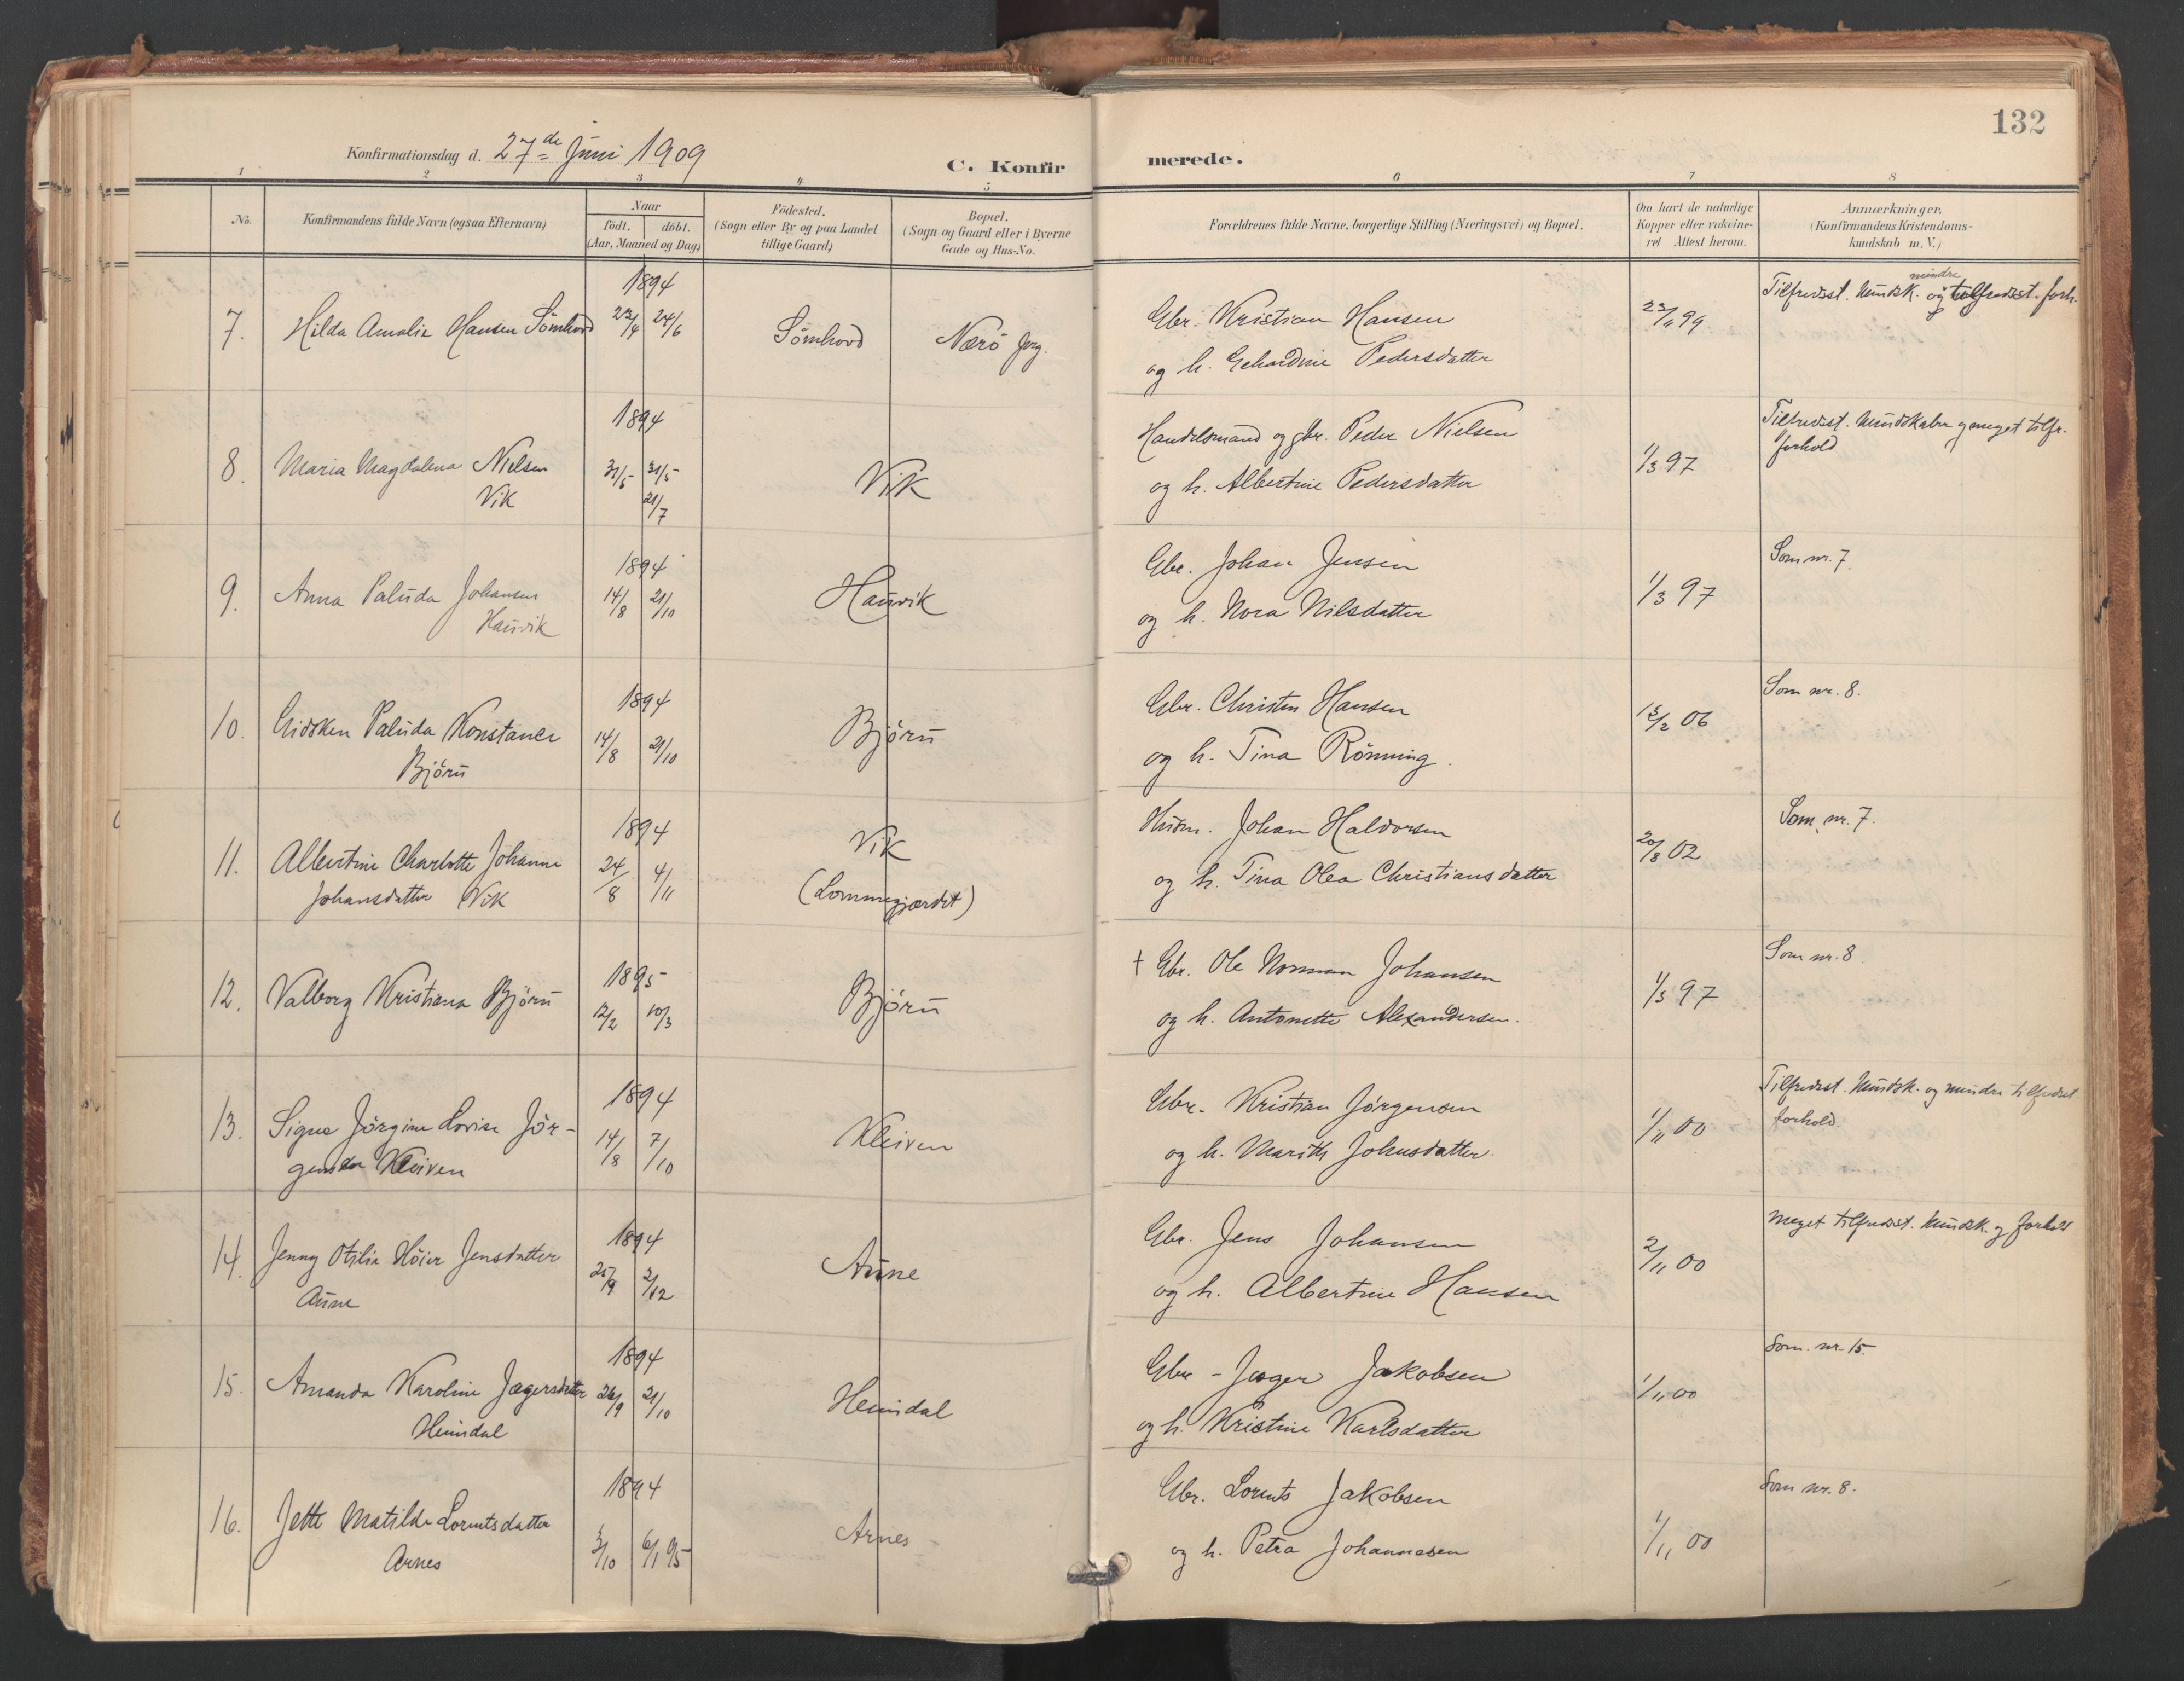 132
Konfirmationsdag d. 27de Juni 1909
C. Konfirmerede.
1 2 3 4 5 6 7 8
No.
Konfirmandens fulde Navn (ogsaa Efternavn)
Naar
födt. döbt.
(Aar, Maaned og Dag)
Födested.
(Sogn eller By og paa Landet
tillige Gaard)
Bopæl.
(Sogn og Gaard eller i Byerne
Gade og Hus-No.
Forældrenes fulde Navne, borgerlige Stilling (Næringsvei) og Bopæl.
Om havt de naturlige
Kopper eller vakcine-
ret Attest herom.
Anmærkninger.
(Konfirmandens Kristendoms-
kundskab m. V.)
7. Hilda Amalia Hansen Sömhovd
1894
23/4 24/6
Sömhovd Nærö prg.
Gbr. Kristian Hansen
og h. Gehardine Pedersdatter
23/11 99
Tilfredsst. kundsk. og mindre tilfredsst. forh.
8. Maria Magdalena Nielsen
Vik
1894
31/5 31/5
21/7
Vik
Handelsmand og gbr. Peder Nielsen
og h. Albertine Pedersdatter
1/3 97
Tilfredsst. kundskaber og meget tilfr.
forhold
9. Anna Paluda Johansen
Hauvik
1894
14/8 21/10
Hauvik
Gbr. Johan Jensen
og h. Nora Nilsdatter
1/3 97
Som nr. 7.
10. Gidsken Paluda Konstance
Björu
1894
14/8 21/10
Björu
Gbr. Christen Hansen
og h. Tina Rönning.
13/2 06
Som nr. 8.
11. Albertine Charlotte Johanne
Johansdatter Vik
1894
24/8 4/11
Vik
(Lommegjærdet)
Husm. Johan Haldorsen
og h. Tina Olea Christiansdatter
20/8 02
Som nr. 7.
12. Valborg Kristiana Björu
1895
12/2 10/3
Björu
† Gbr. Ole Norman Johansen
og h. Antonette Alexandersen.
1/3 97
Som nr. 8.
13. Signe Jörgine Lovise Jör-
gensen Kleiven
1894
14/8 7/10
Kleiven
Gbr. Kristian Jörgensen
og h. Marith Johnsdatter.
1/11 00
Tilfredsst. kundsk. og mindre tilfredsst
forhold.
14. Jenny Otilia Höier Jensdatter
Aune
1894
25/9 2/12
Aune
Gbr. Jens Johansen
og h. Albertine Hansen
2/11 00
Meget tilfredsst. kundsk. og forhold
15. Amanda Karoline Jægersdatter
Heimdal
1894
26/9 21/10
Heimdal
Gbr - Jæger Jakobsen
og h. Kristine Karlsdatter
1/11 00
Som. nr. 15.
16. Jette Matilde Lorentsdatter
Arnes
1894
3/10 6/1 95
Arnes
Gbr. Lorents Jakobsen
og h. Petra Johannesen
1/11 00
Som nr. 8.